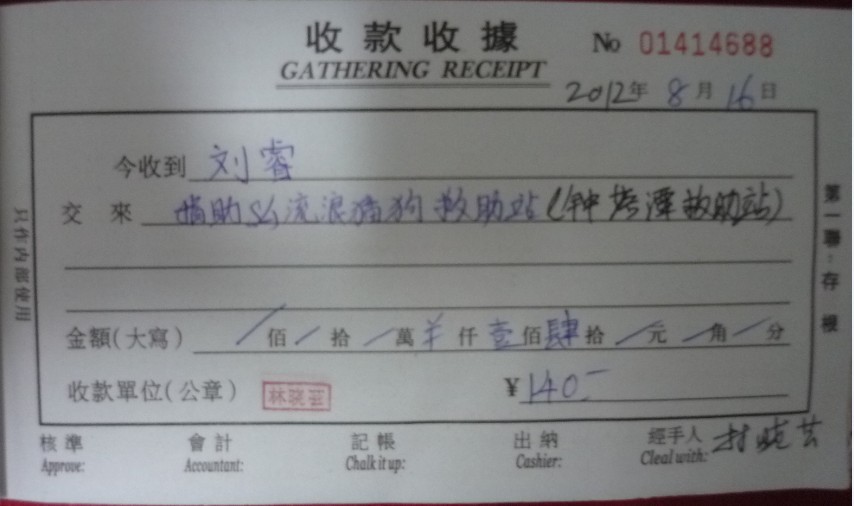 收款收據
GATHERING RECEIPT
No 01414688
2012年 8月 16日
今收到 刘睿
交 來 捐助 流浪猫狗救助站(钟 潭救助站)
金額(大寫) / 佰 / 拾 / 萬 ¥ 仟 壹 佰 肆 拾 / 元 / 角 / 分
收款單位(公章) 林晓芸 ¥ 140.-
核準 會計 記帳 出納 經手人 林晓芸
Approve: Accountant: Chalk it up: Cashier: Cleal with:
只作內部使用
第一聯:存根